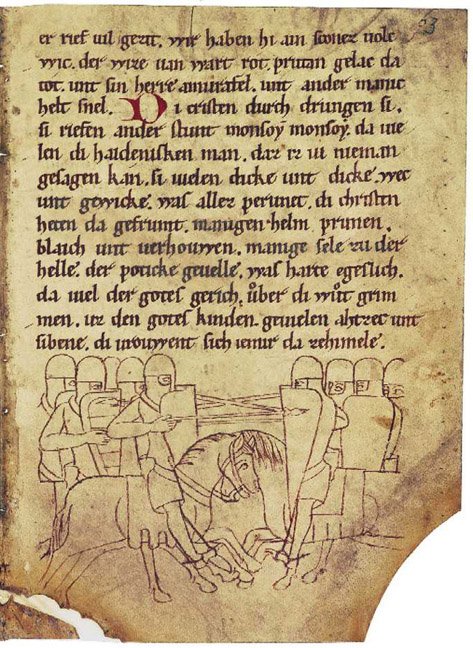 63
er rief uil gerit. wir haben hi ain sconez uolc
wic. der wize uan wart rot. prutan gelac da
tot. unt sin herre amurafel. unt ander manic
helt snel. Di cristen durch drungen si.
si riefen ander stunt monsoẏ monsoẏ. da uie
len di haidenisken man. daz iz iu nieman
gesagen kan. si uielen dicke unt dicke. wec
unt gewicke. was allez perunet. di christen
heten da gefrumt. manigen helm prunen.
blaich unt uerhowwen. manige sele zu der
helle. der poticke geuelle. was harte egeslich.
da uiel der gotes gerich. uͦber di wuͦt grim
men. uz den gotes kinden. geuielen ahtzec unt
sibene. di urouwent sich iemir da zehimele.